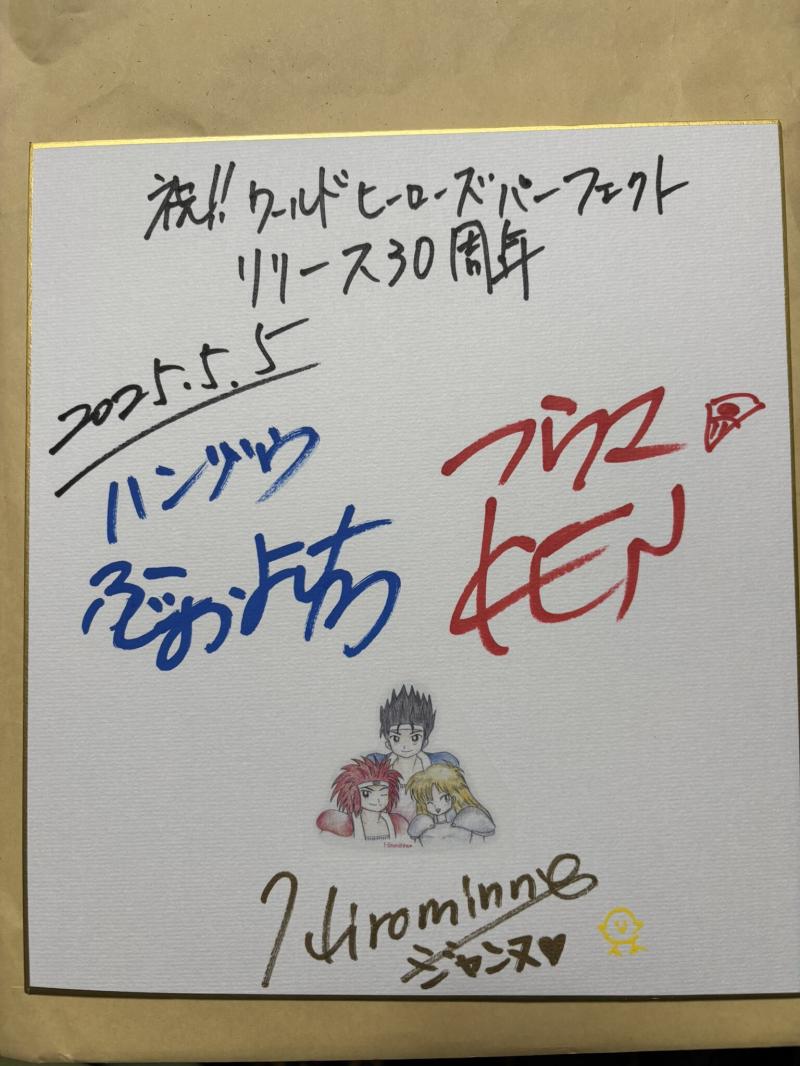 祝!! ワールドヒーローズパーフェクト
リリース30周年
2025.5.5
ハンゾウ
フウマ
KEN
Hirominne
Hirominne
ジャンヌ♥